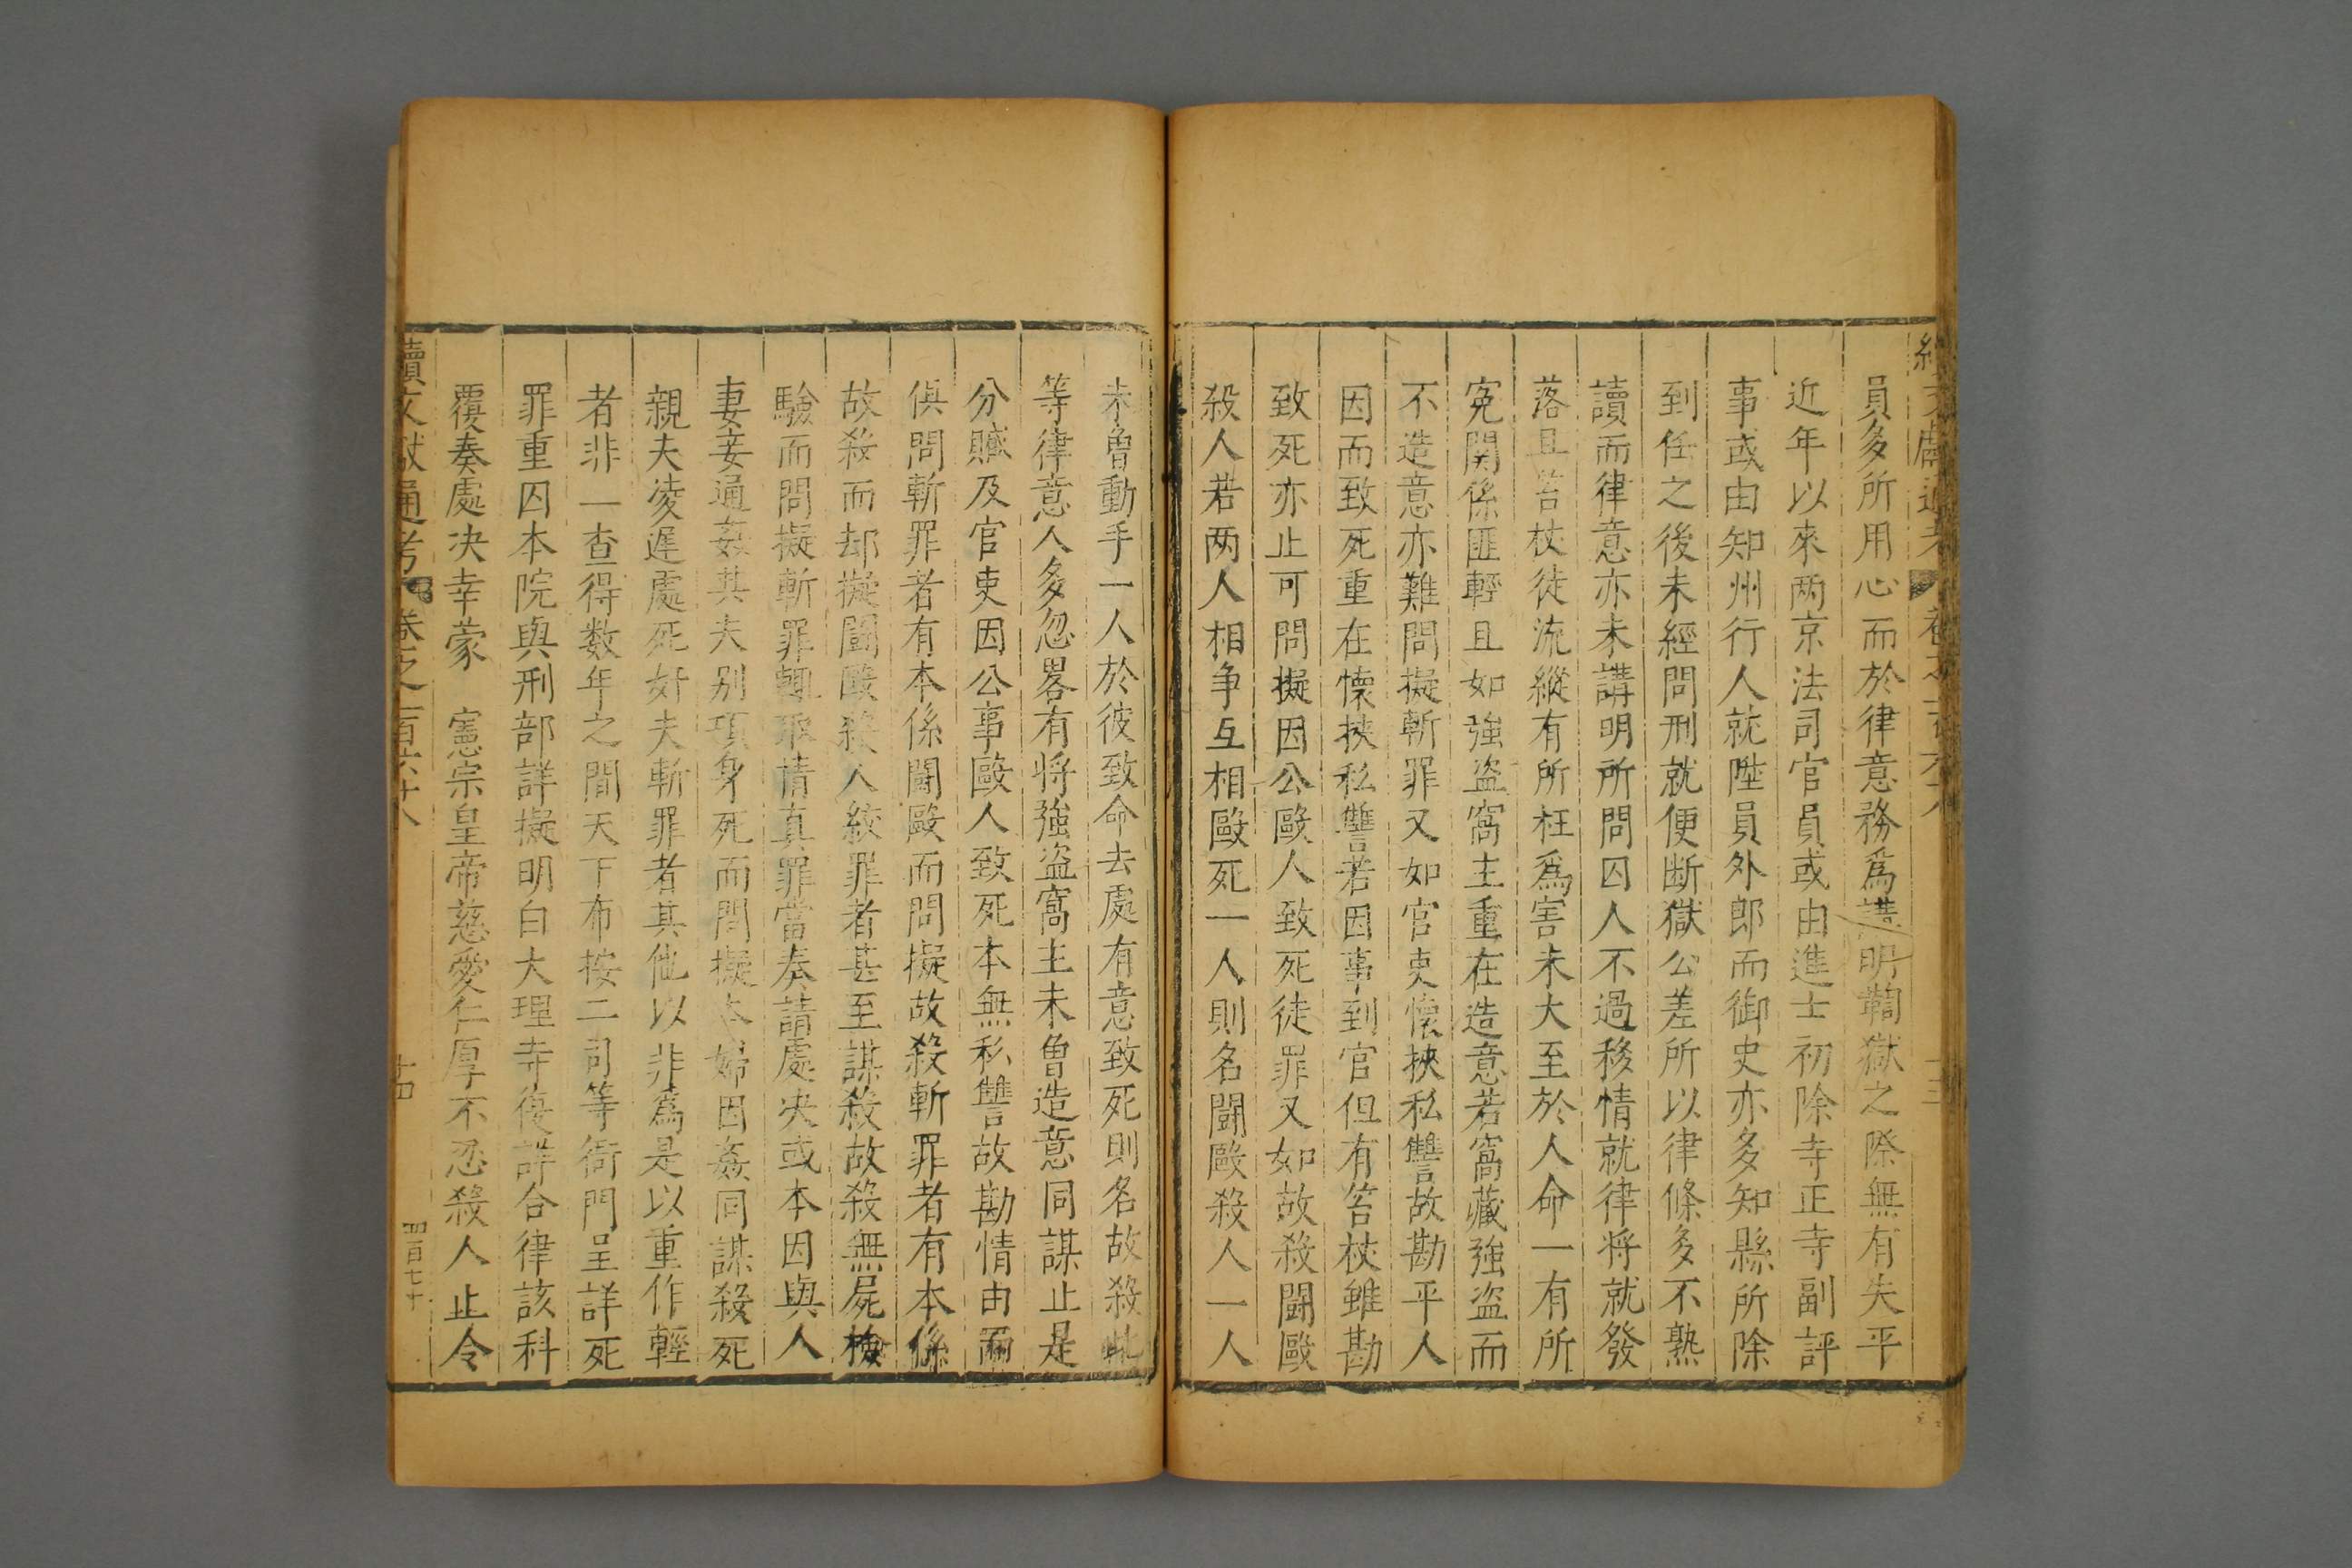 員多所用心而於律意務爲講明鞫獄之際無有失平
近年以來两京法司官員或由進士初除寺正寺副評
事或由知州行人就陞員外郎而御史亦多知縣所除
到任之後未經問刑就便断獄公差所以律條多不熟
讀而律意亦未講明所問囚人不過移情就律将就發
落且笞杖徒流縱有所枉爲害未大至於人命一有所
寃関係匪輕且如強盗窩主重在造意若窩藏強盗而
不造意亦難問擬斬罪又如官吏懷挾私讐故勘平人
因而致死重在懷挾私讐若因事到官但有笞杖雖勘
致死亦止可問擬因公毆人致死徒罪又如故殺鬬毆
殺人若两人相争互相毆死一人則名鬬毆殺人一人
未曾動手一人於彼致命去處有意致死則名故殺此
等律意人多忽畧有将強盗窩主未曾造意同謀止是
分贓及官吏因公事毆人致死本無私讐故勘情由而
俱問斬罪者有本係鬬毆而問擬故殺斬罪者有本係
故殺而却擬鬬毆殺人絞罪者甚至謀殺故殺無屍檢
驗而問擬斬罪輙取情真罪當奏請處决或本因與人
妻妾通姦其夫别項身死而問擬本婦因姦同謀殺死
親夫凌遲處死奸夫斬罪者其他以非爲是以重作輕
者非一查得数年之間天下布按二司等衙門呈詳死
罪重囚本院與刑部詳擬明白大理寺復詳合律該科
覆奏處决幸蒙　憲宗皇帝慈愛仁厚不忍殺人止令
續文獻通考　卷之一百六十八　十四　四百七十